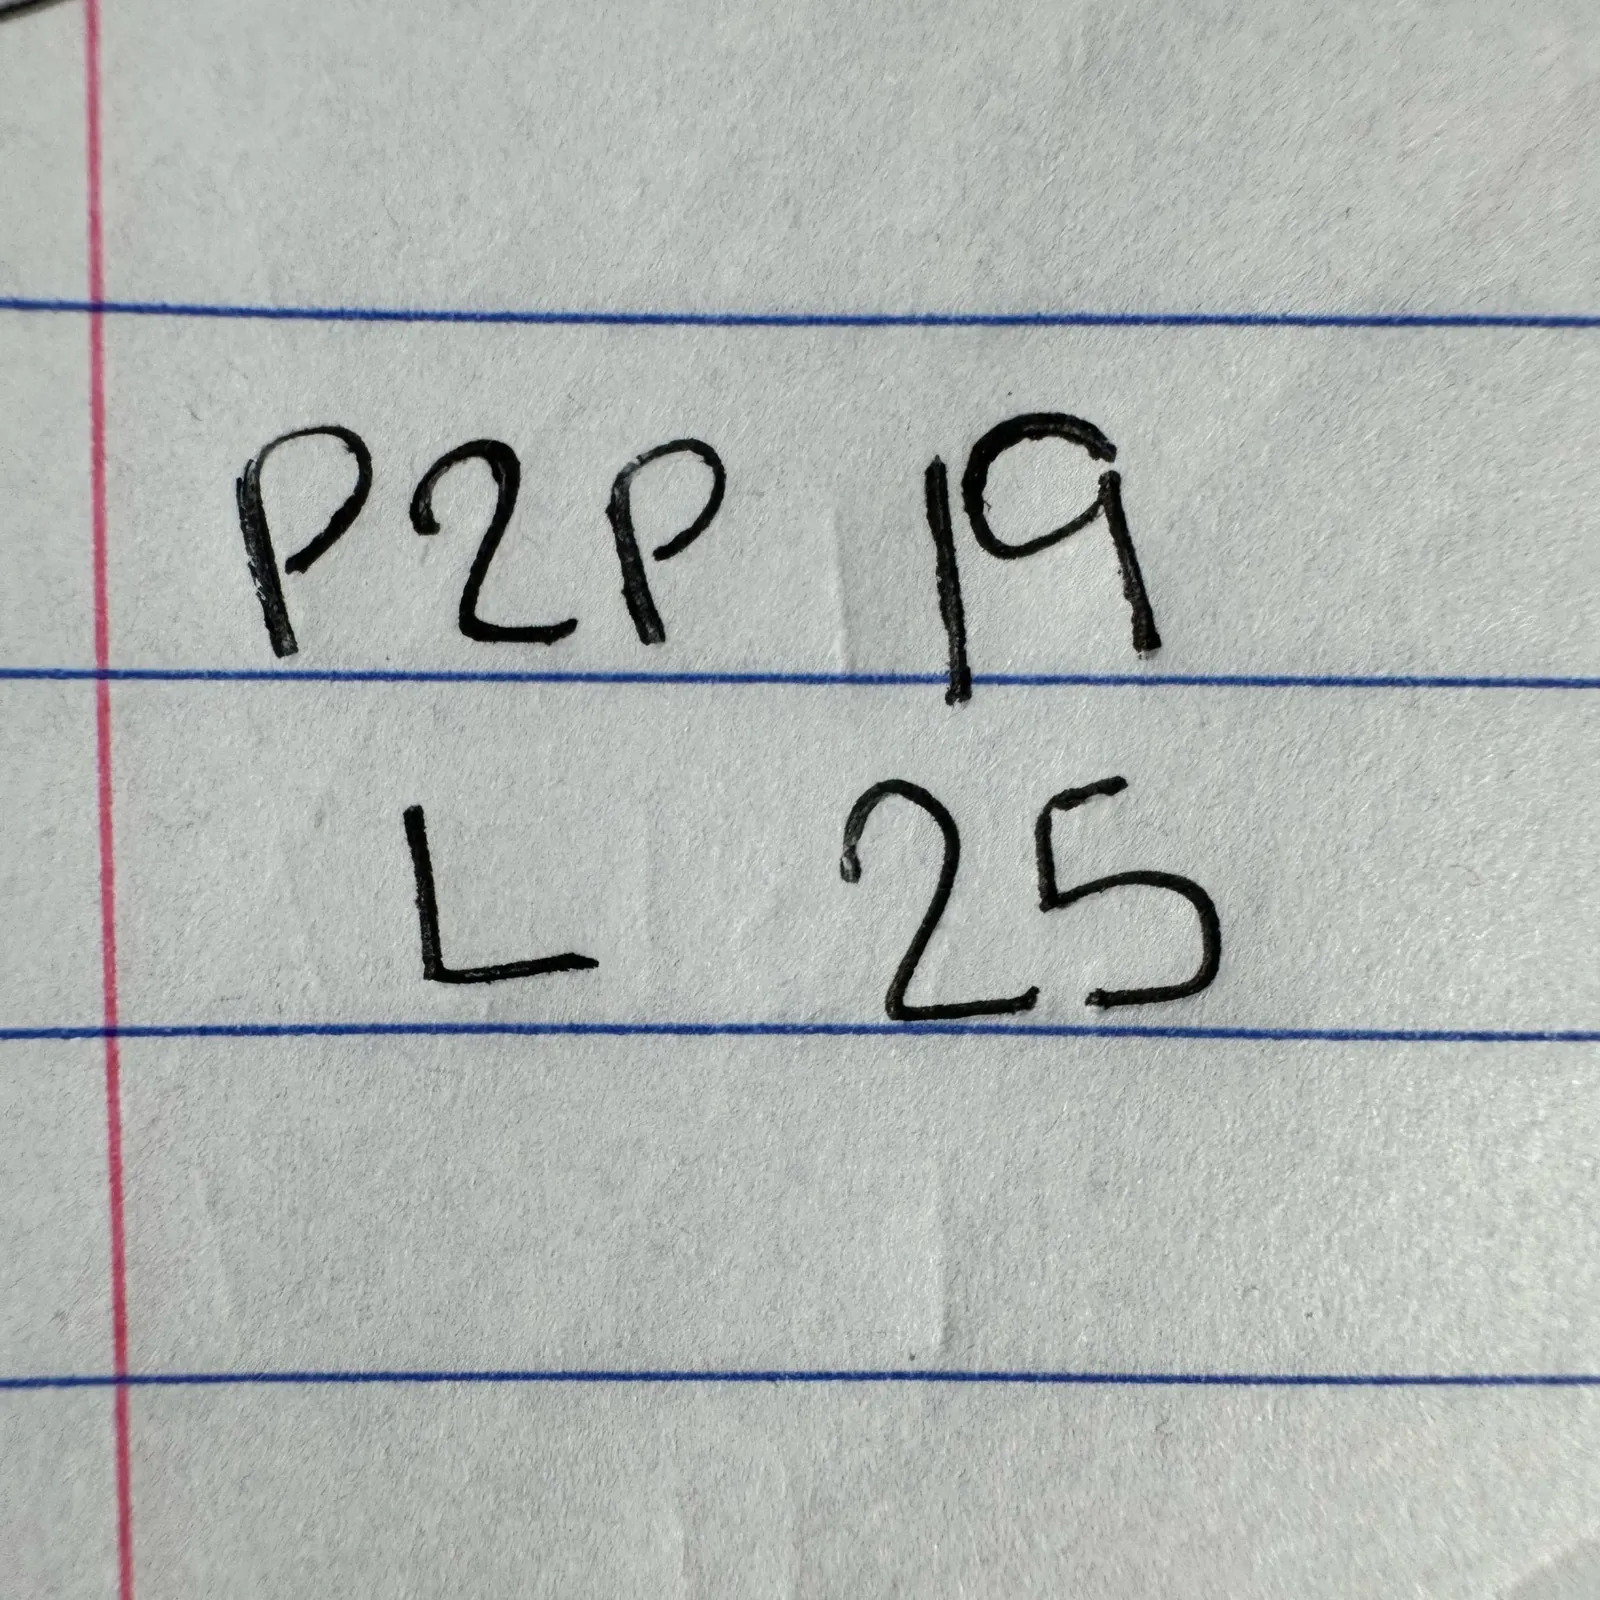 P2P 19
L 25